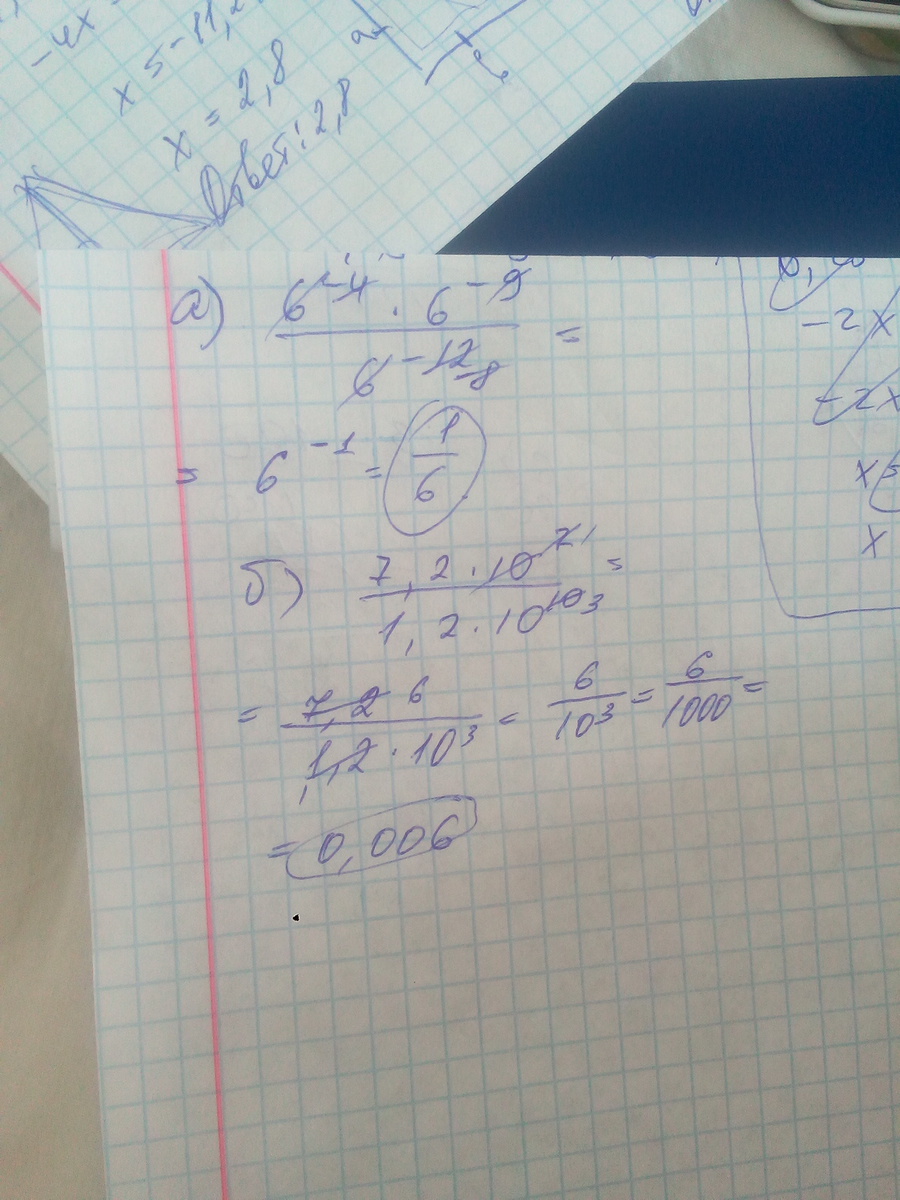 -4x =
x = 2,8
Ответ: 2,8
а) (6^-4 · 6^-9) / 6^-12 -8 =
= 6^-1 = 1/6
б) (7,2 · 10^7 1) / (1,2 · 10^10 3) =
= (7,2 6) / (1,2 · 10^3) = 6/10^3 = 6/1000 =
= 0,006
-2x
-2x
x
x